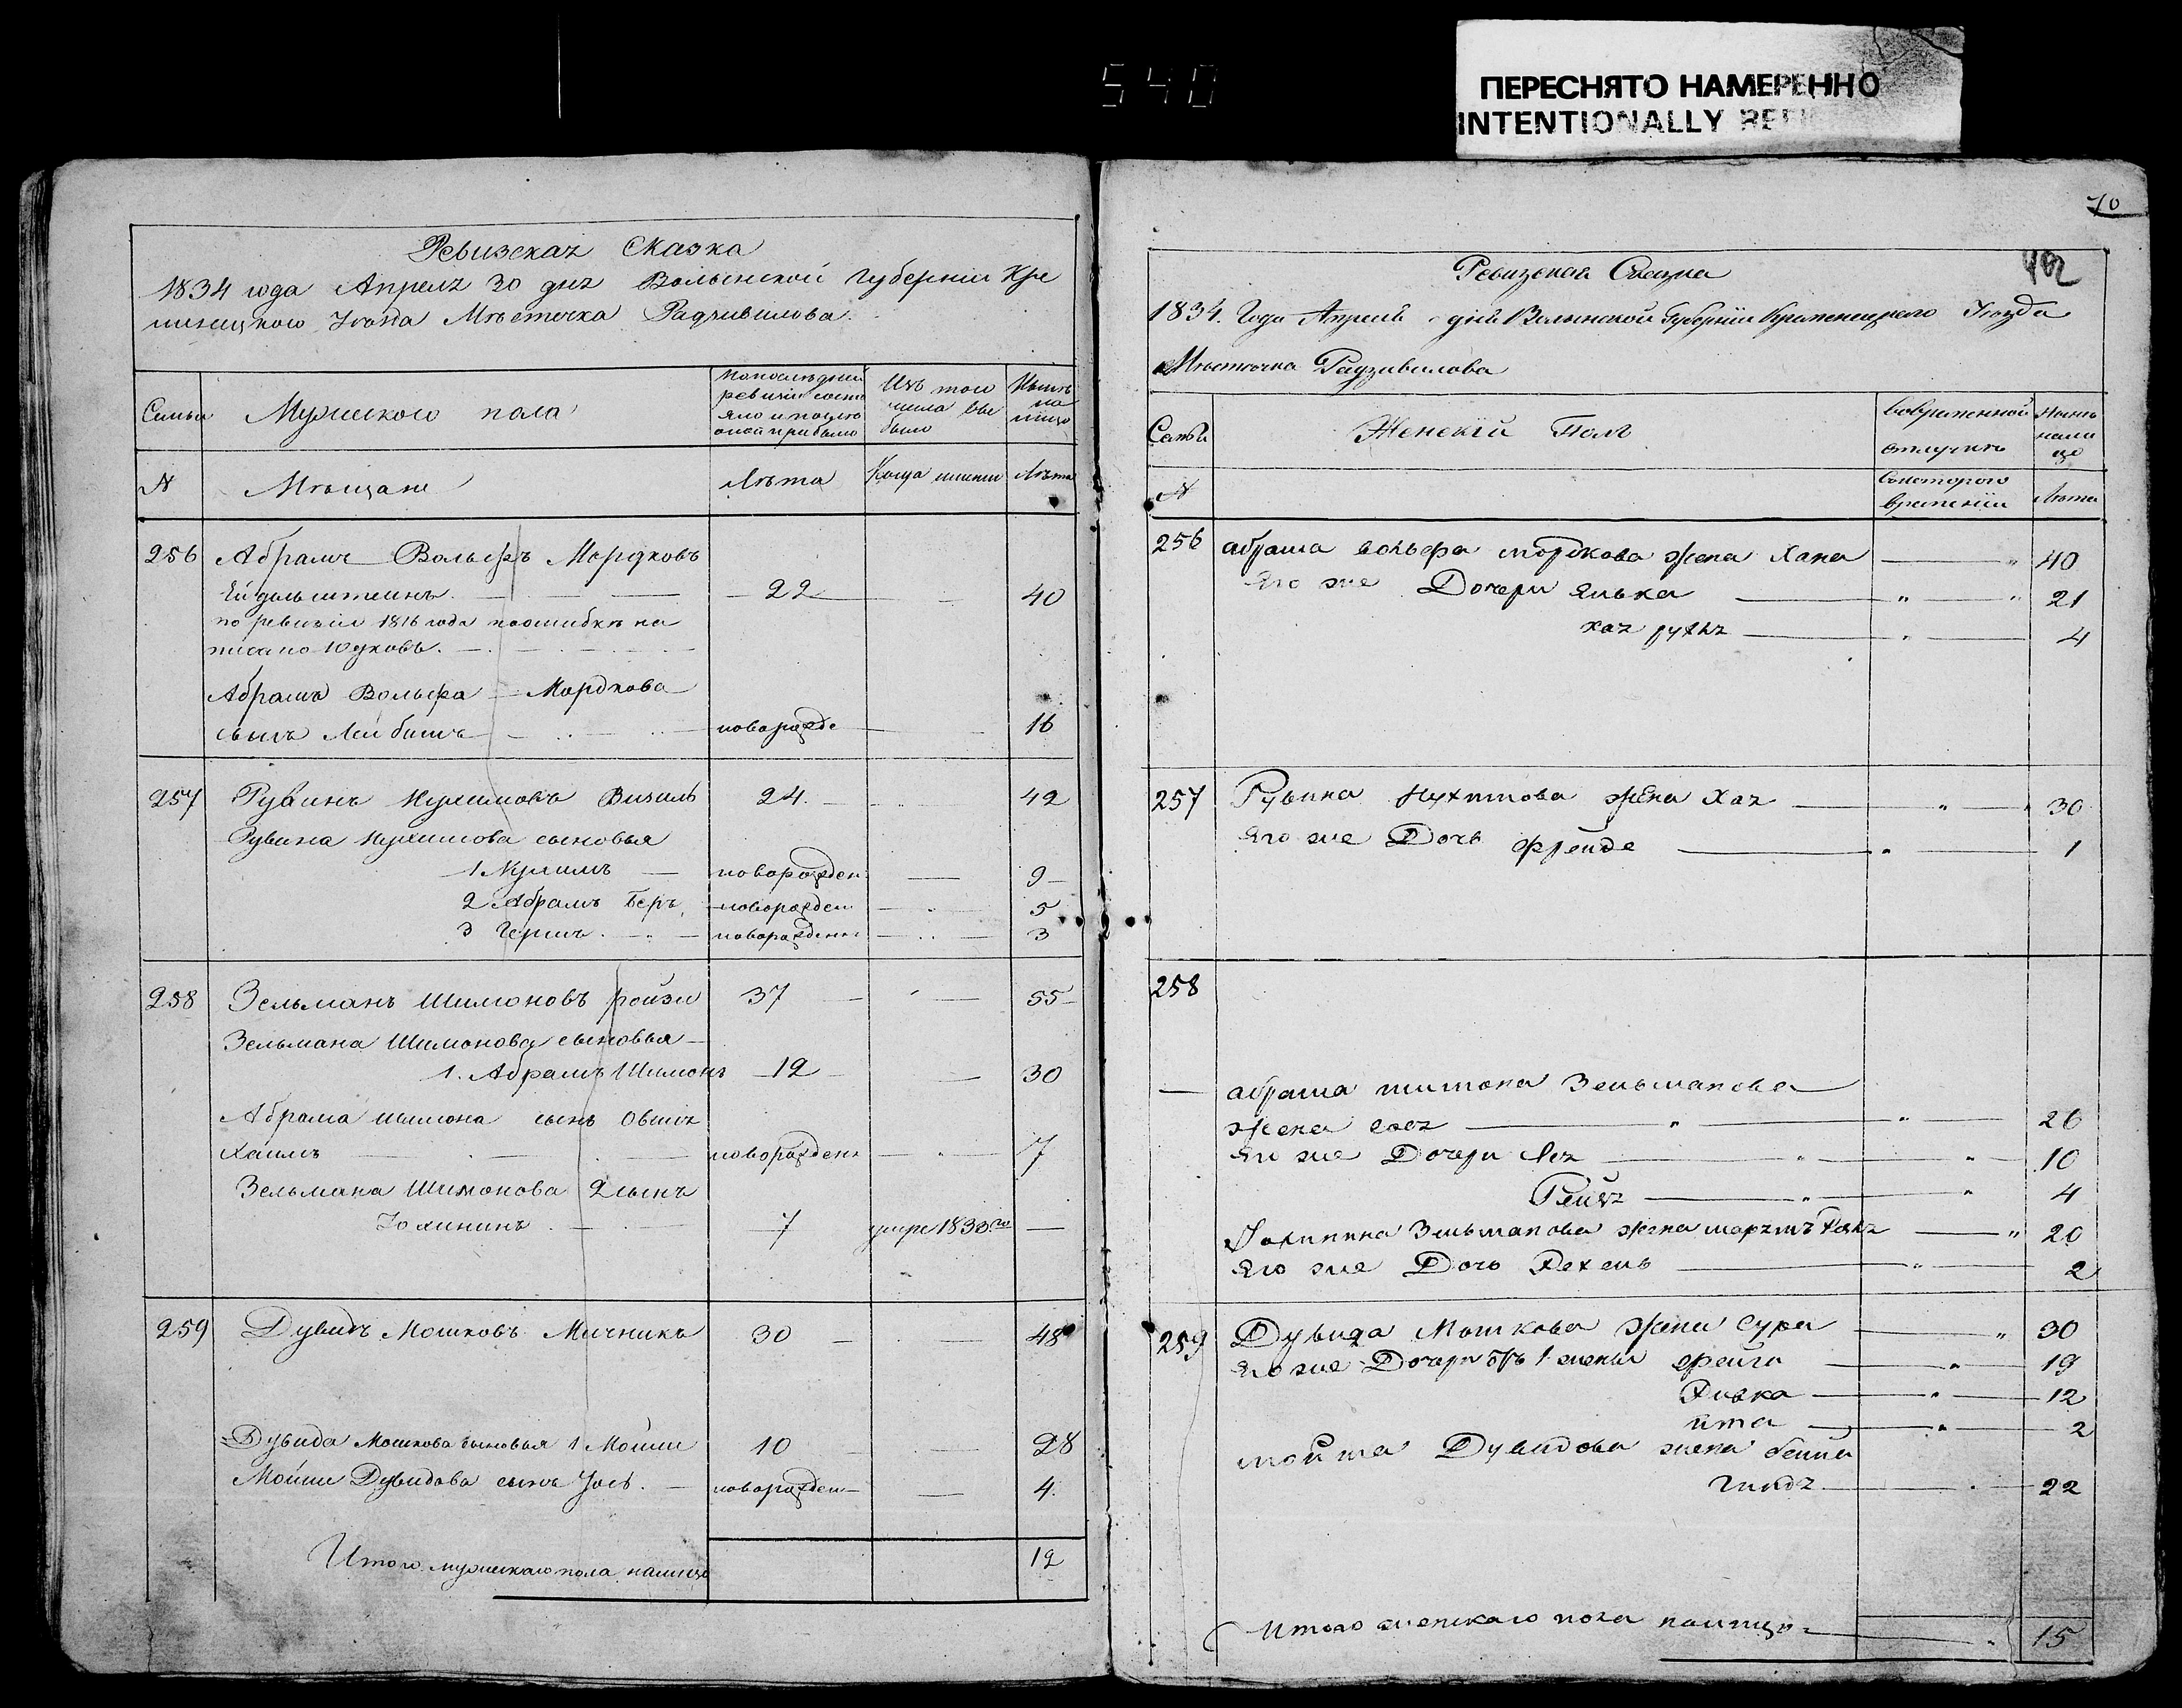 540
ПЕРЕСНЯТО НАМЕРЕННО
INTENTIONALLY
Ревизская Сказка
1834 года Апреля 30 дня Волынской Губерніи Кре
минецкого Уезда Мѣстечка Радзивилова
Семьи
Мужеского пола
По последней ревизіи состо яло и после оной прибыло
Изъ того числа вы было
Нынѣ на лицо
N
Мѣщане
Лѣта
Когда именно
Лѣта
256 Абрамъ Вольфъ Мордковъ
22 40
по ревизіи 1816 года поошибкѣ на
писано Юдковъ.
Абрама Вольфа Мордкова
сынъ Лейбишъ новорожде 16
257 Рувинъ Нухимовъ Визель 24. 42
Рувина Нухимова сыновья
1 Нухимъ новорожден 9
2 Абрамъ Беръ новорожден 5
3 Гершъ новорожденн 3
258 Зельманъ Шимоновъ ройзи 37 55
Зельмана Шимонова сыновья
1. Абрамъ Шимонъ 12 30
Абрама Шимона сынъ Овшія
Хаимъ новорожденн 7
Зельмана Шимонова 2 сынъ
7 умре 1833 го
259 Дувидъ Мошковъ Мичникъ 30 48
Дувида Мошкова сыновья 1 Мойши 10 28
Мойши Дувидова сынъ Іось новорожден 4
Итого мужескаго пола налицо 12
70
402
Ревизская Сказка
1834. Года Апреля дня Волынской Губерніи Кременецкого Уезда
Мѣстечка Радзивилова
Семьи
Женскій Полъ
Вовременной отлучкѣ
Нынѣ нали цо
N
Съкоторого времени
Лѣта
256 абрама вольфа мордкова жена Хана 40
Его же Дочери 21
хая 4
257 Рувина Нухимова жена Хая 30
Его же Дочь Фрейде 1
258
абрама шимона Зельманова
жена 26
Его же Дочери Лея 10
Рейзя 4
Зельманова жена 20
Его же Дочь Рехель 2
259 Дувида Мошкова жена Сура 30
Его же Дочери отъ 1 жены фейги 19
Ривка 12
ита 2
мойша Дувидова жена бейла
22
Итого женскаго пола налицо 15